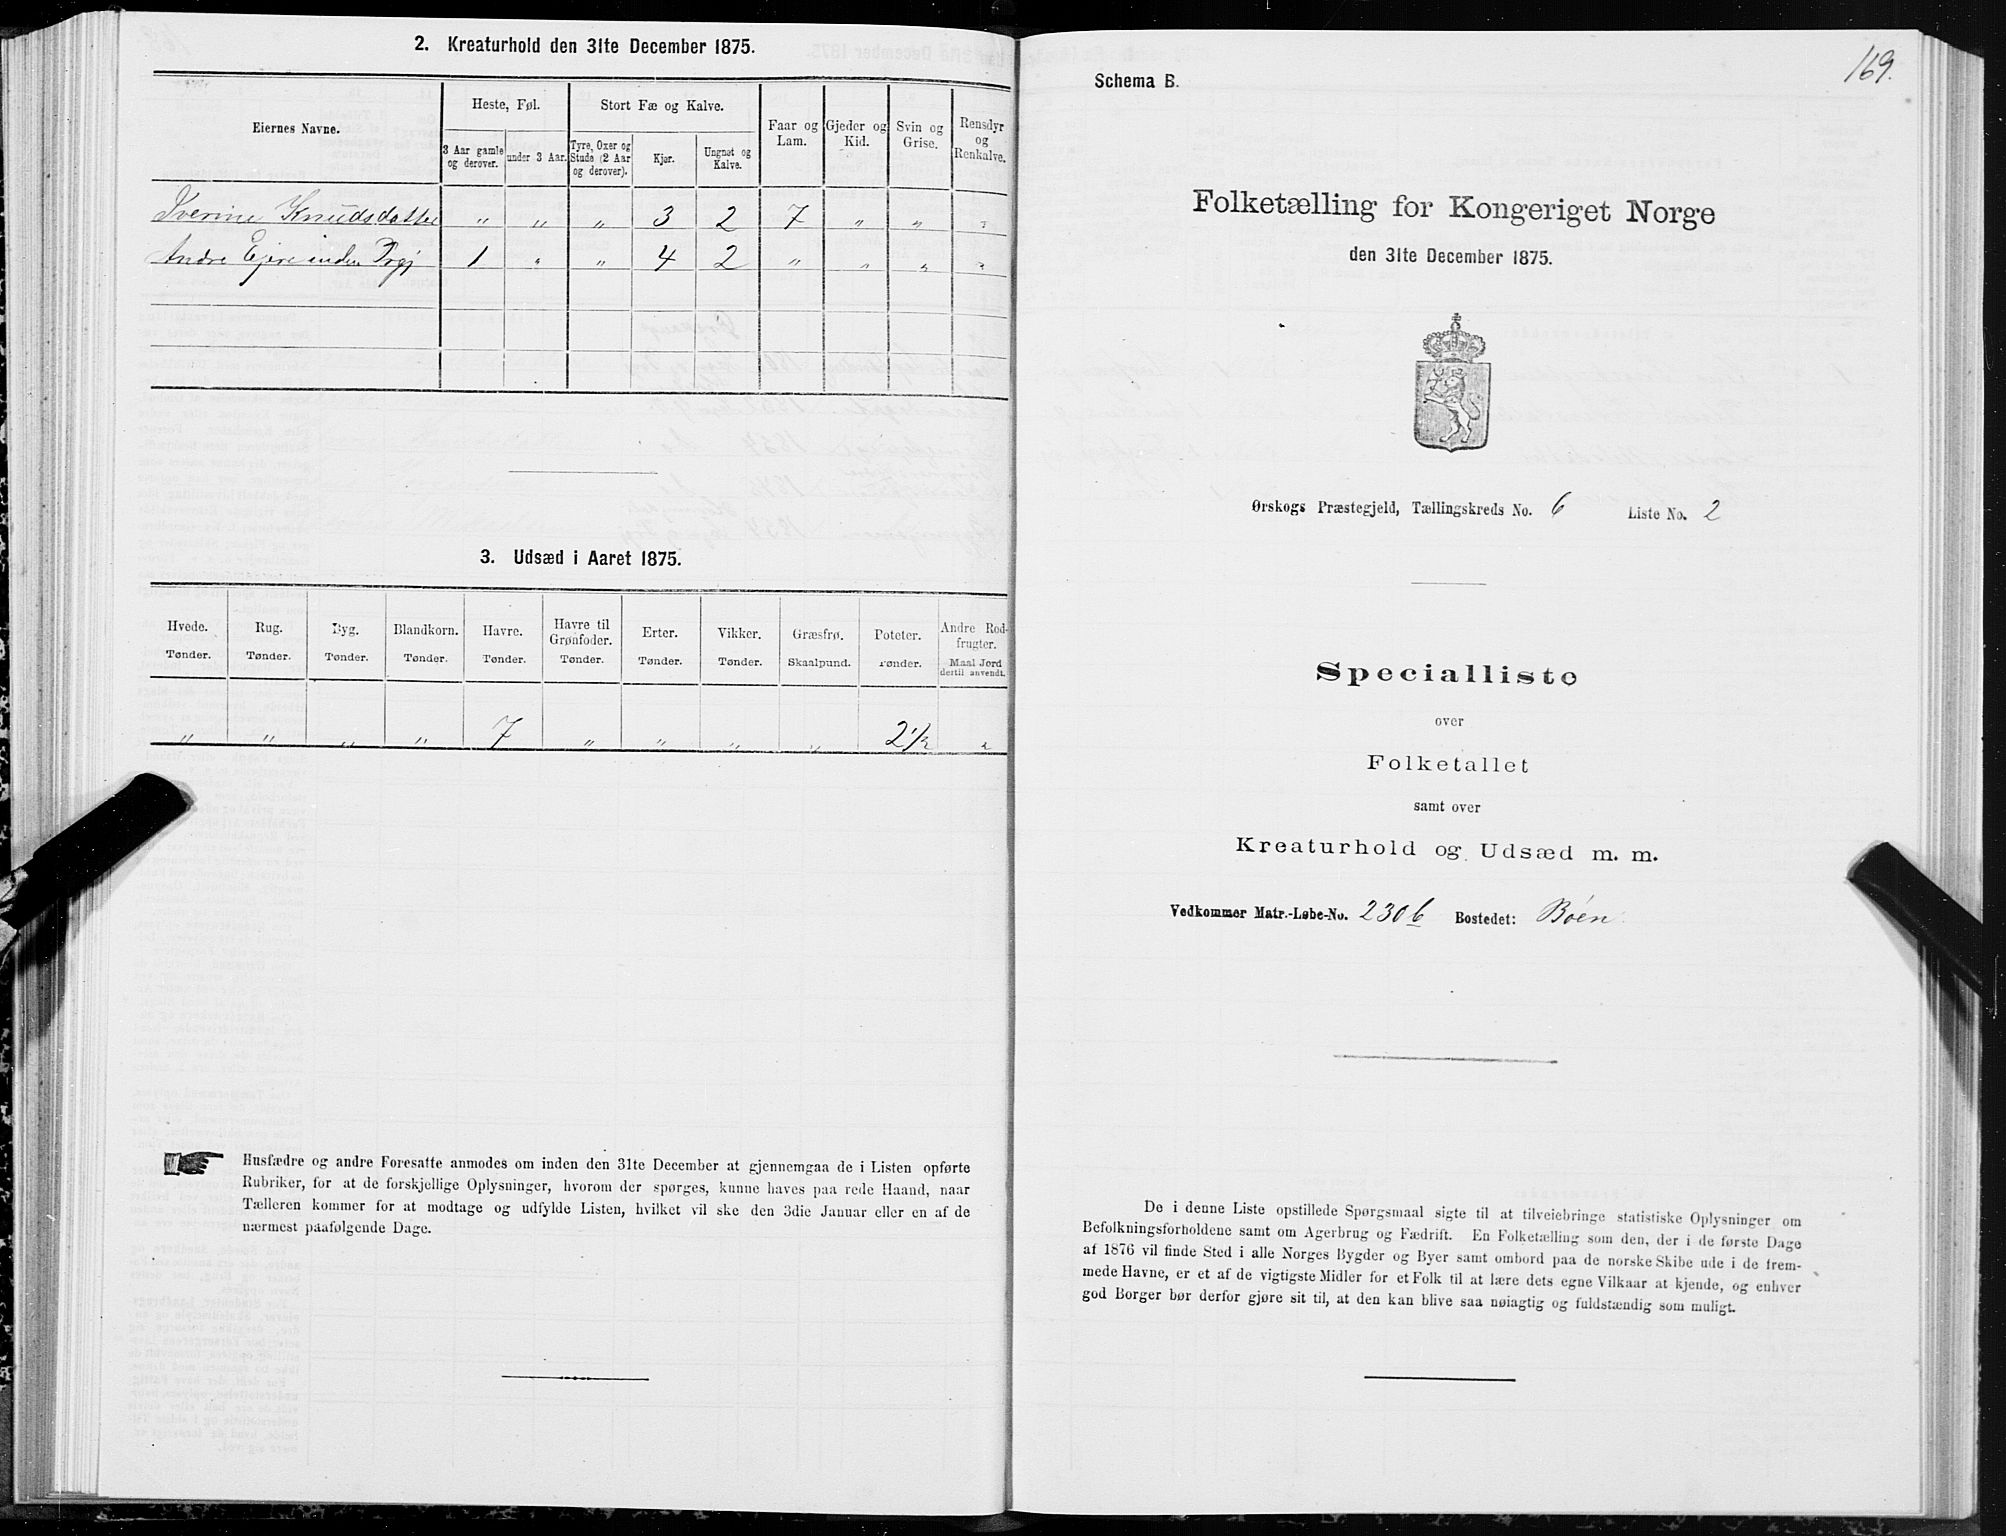 2. Kreaturhold den 31te December 1875.
Eiernes Navne.
Heste, Føl.
Stort Fæ og Kalve.
Faar og Lam.
Gjeder og Kid.
Svin og Grise.
Rensdyr og Renkalve.
3 Aar gamle og derover.
under 3 Aar.
Tyre, Oxer og Stude (2 Aar og derover).
Kjør.
Ungnøt og Kalve.
Iverine Knudsdatter " " " 3 2 7 " " "
Andre Ejere inden Prgj 1 " " 4 2 " " " "
3. Udsæd i Aaret 1875.
Hvede. Rug. Byg. Blandkorn. Havre. Havre til Grønfoder. Erter. Vikker. Græsfrø. Poteter. Andre Rodfrugter.
Tønder. Tønder. Tønder. Tønder. Tønder. Tønder. Tønder. Tønder. Skaalpund. Tønder. Maal Jord dertil anvendt.
" " " " 7 " " " " 2 1/2 "
Husfædre og andre Foresatte anmodes om inden den 31te December at gjennemgaa de i Listen opførte
Rubriker, for at de forskjellige Oplysninger, hvorom der spørges, kunne haves paa rede Haand, naar
Tælleren kommer for at modtage og udfylde Listen, hvilket vil ske den 3die Januar eller en af de
nærmest paafølgende Dage.
169.
Schema B.
Folketælling for Kongeriget Norge
den 31te December 1875.
Ørskogs Præstegjeld, Tællingskreds No. 6 Liste No. 2
Specialliste
over
Folketallet
samt over
Kreaturhold og Udsæd m. m.
Vedkommer Matr.-Løbe-No. 230b Bostedet: Böen
De i denne Liste opstillede Spørgsmaal sigte til at tilveiebringe statistiske Oplysninger om
Befolkningsforholdene samt om Agerbrug og Fædrift. En Folketælling som den, der i de første Dage
af 1876 vil finde Sted i alle Norges Bygder og Byer samt ombord paa de norske Skibe ude i de frem-
mede Havne, er et af de vigtigste Midler for et Folk til at lære dets egne Vilkaar at kjende, og enhver
god Borger bør derfor gjøre sit til, at den kan blive saa nøiagtig og fuldstændig som muligt.